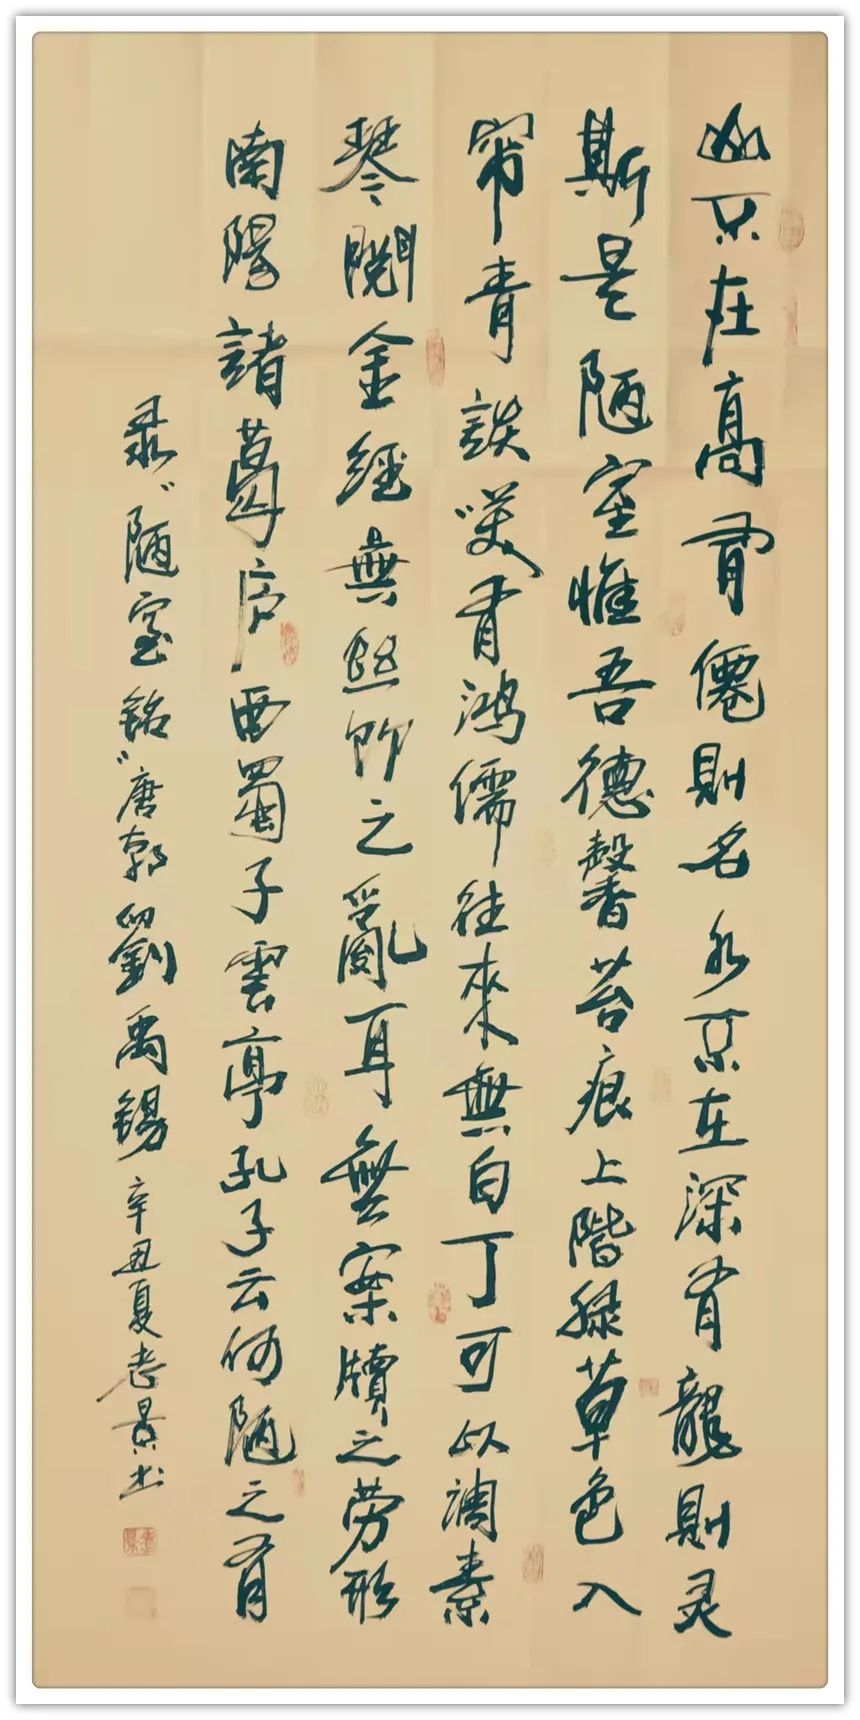 山不在高有僊則名水不在深有龍則灵
斯是陋室惟吾德馨苔痕上階緑草色入
帘青談咲有鸿儒往來無白丁可以調素
琴閲金經無絲竹之亂耳無案牘之劳形
南陽諸葛庐西蜀子雲亭孔子云何陋之有
录“陋室銘”唐朝劉禹錫辛丑夏老景书